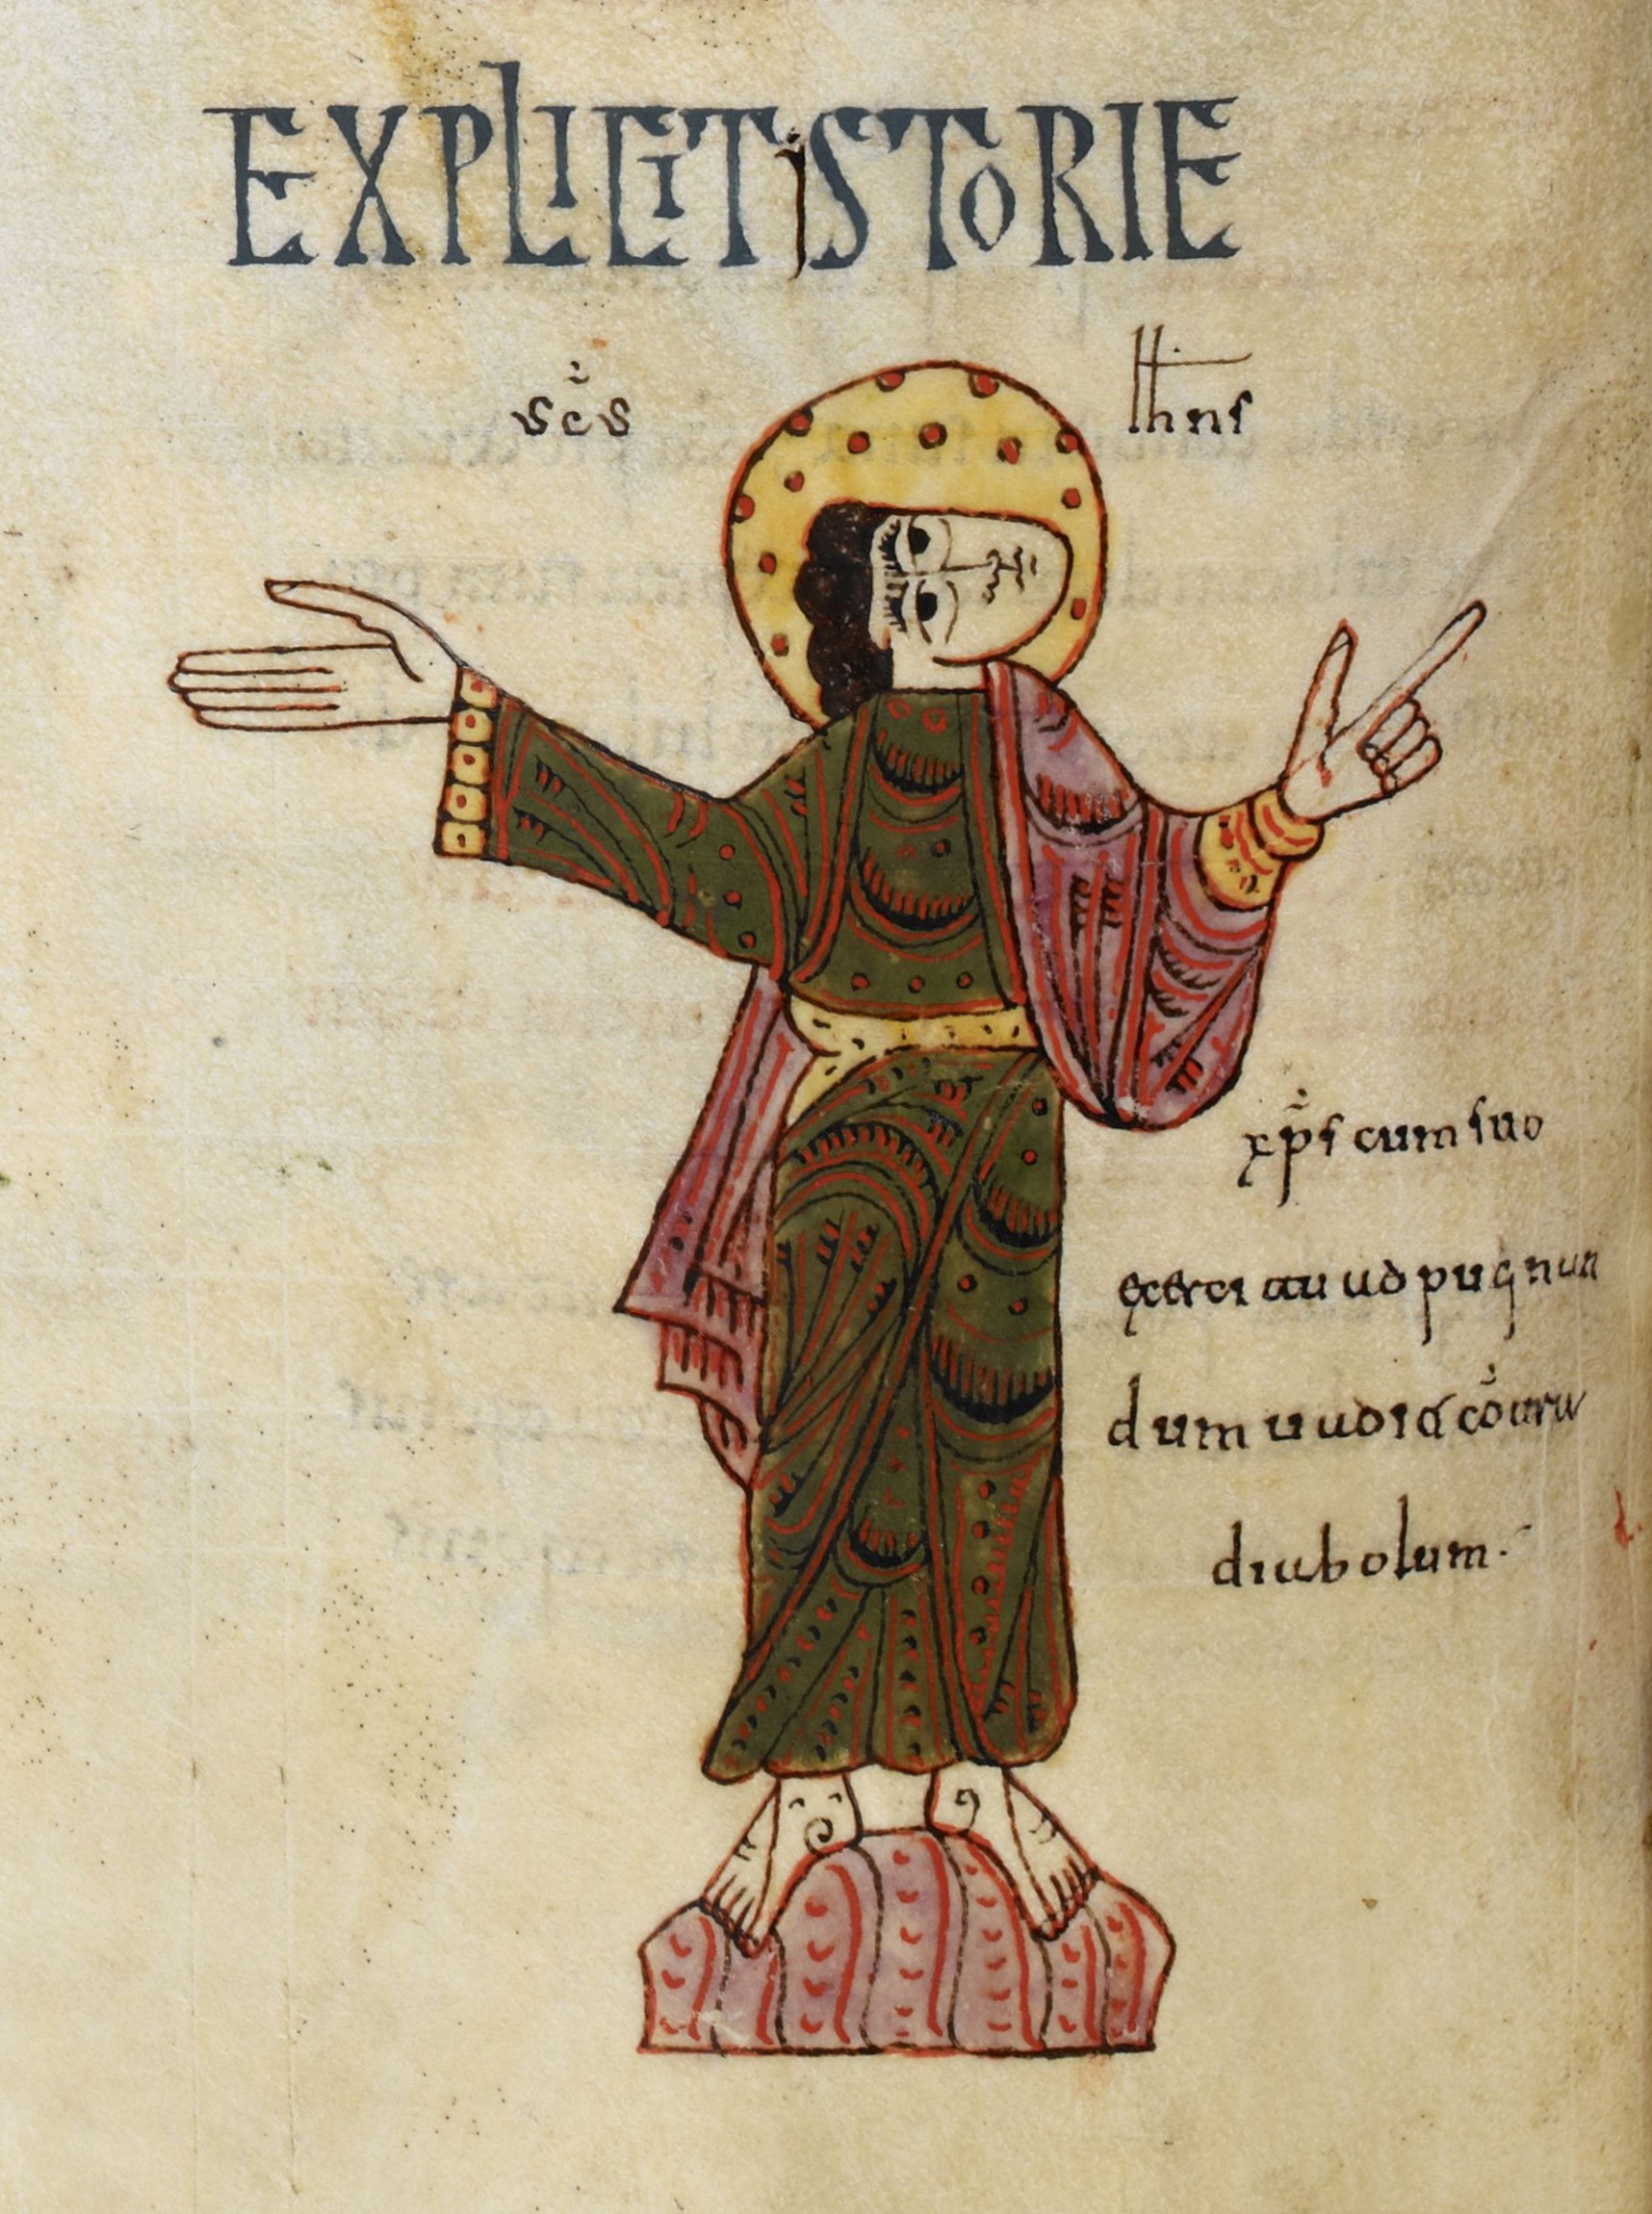 EXPLICIT ISTORIE
scs Ihns
xps cum suo
exercitu ad pugnan
dum uadit contra
diabolum.